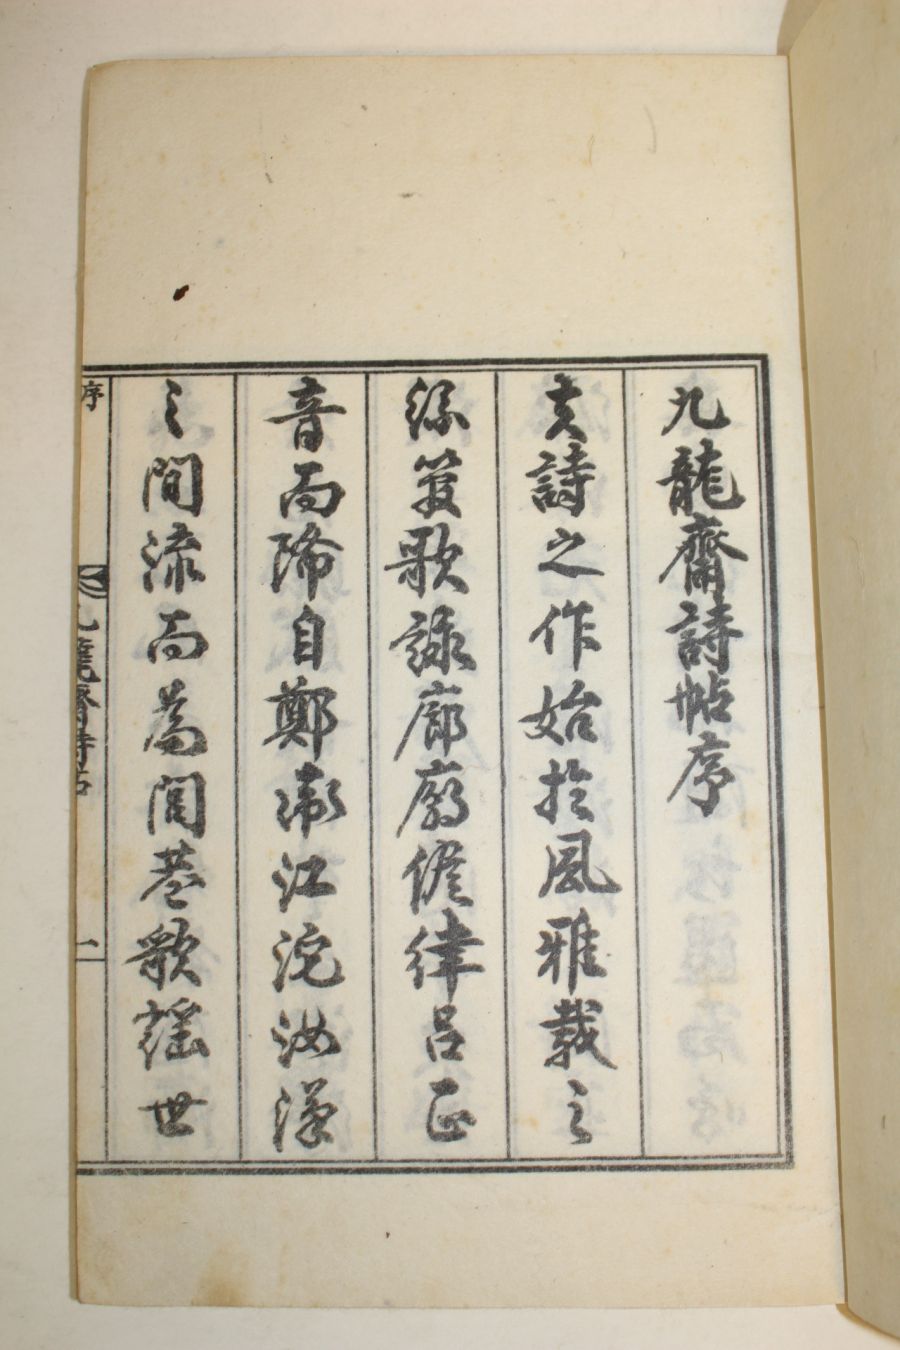 九龍齋詩帖序
夫詩之作始於風雅載之
絃筦歌謠廊廟儋律呂正
音而降自鄭衛江沱汝漢
之間流而爲閭巷歌謠世
序
九龍齋詩帖
一